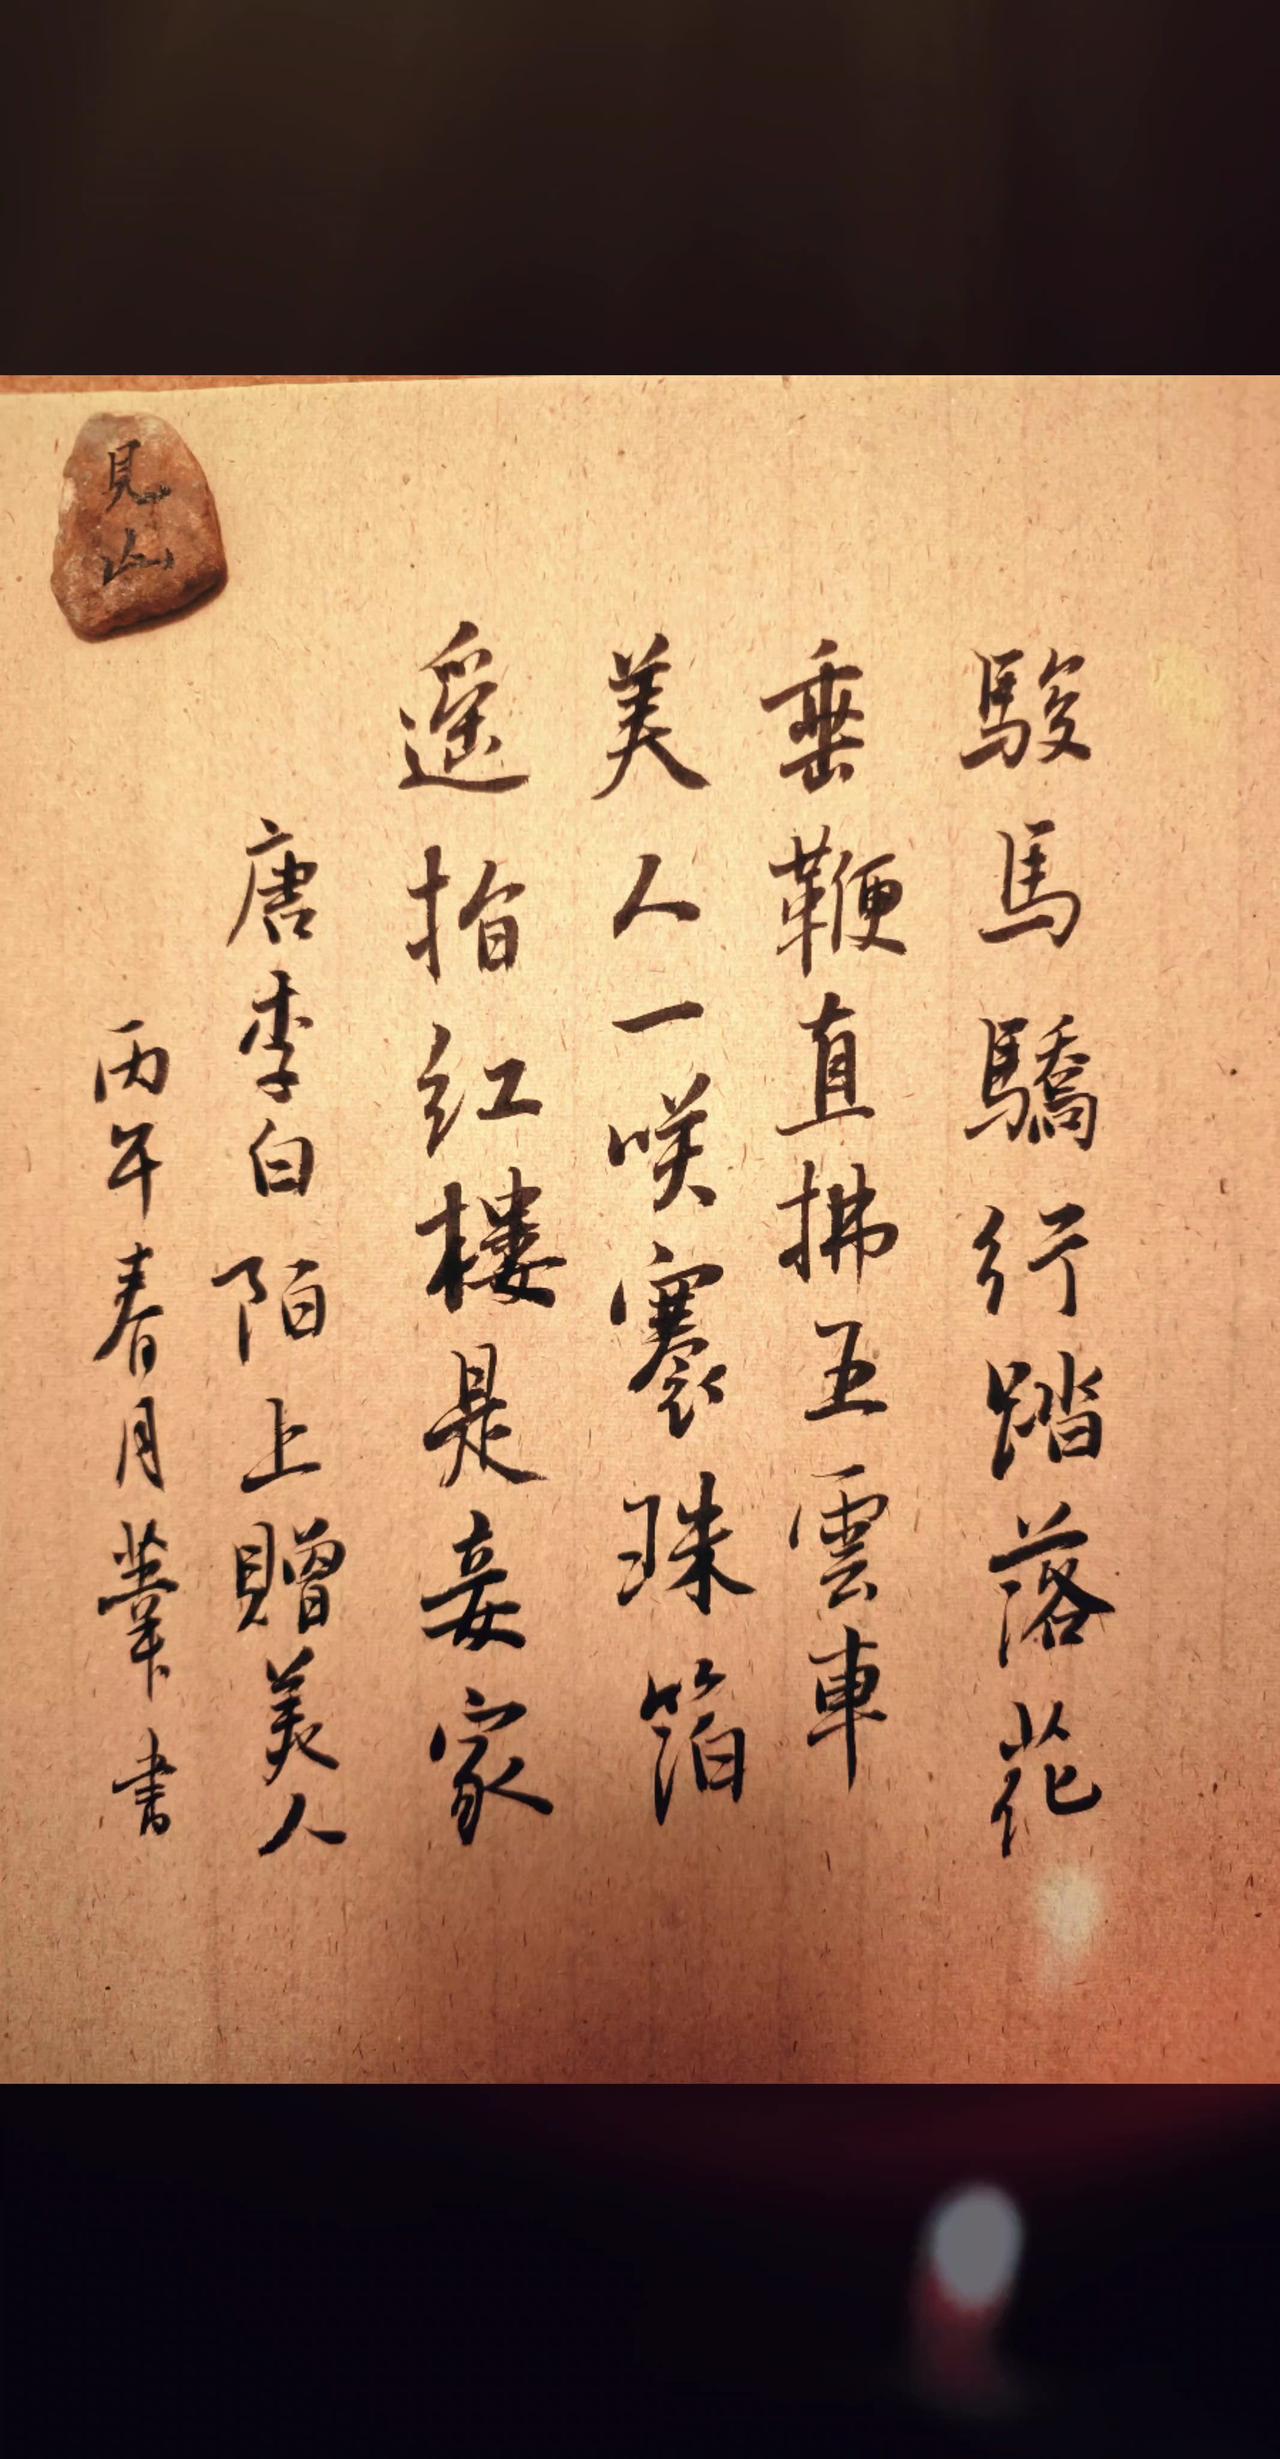 駿馬驕行踏落花
垂鞭直拂五雲車
美人一咲褰珠箔
遥指红樓是妾家
唐李白陌上贈美人
丙午春月肇書
見山